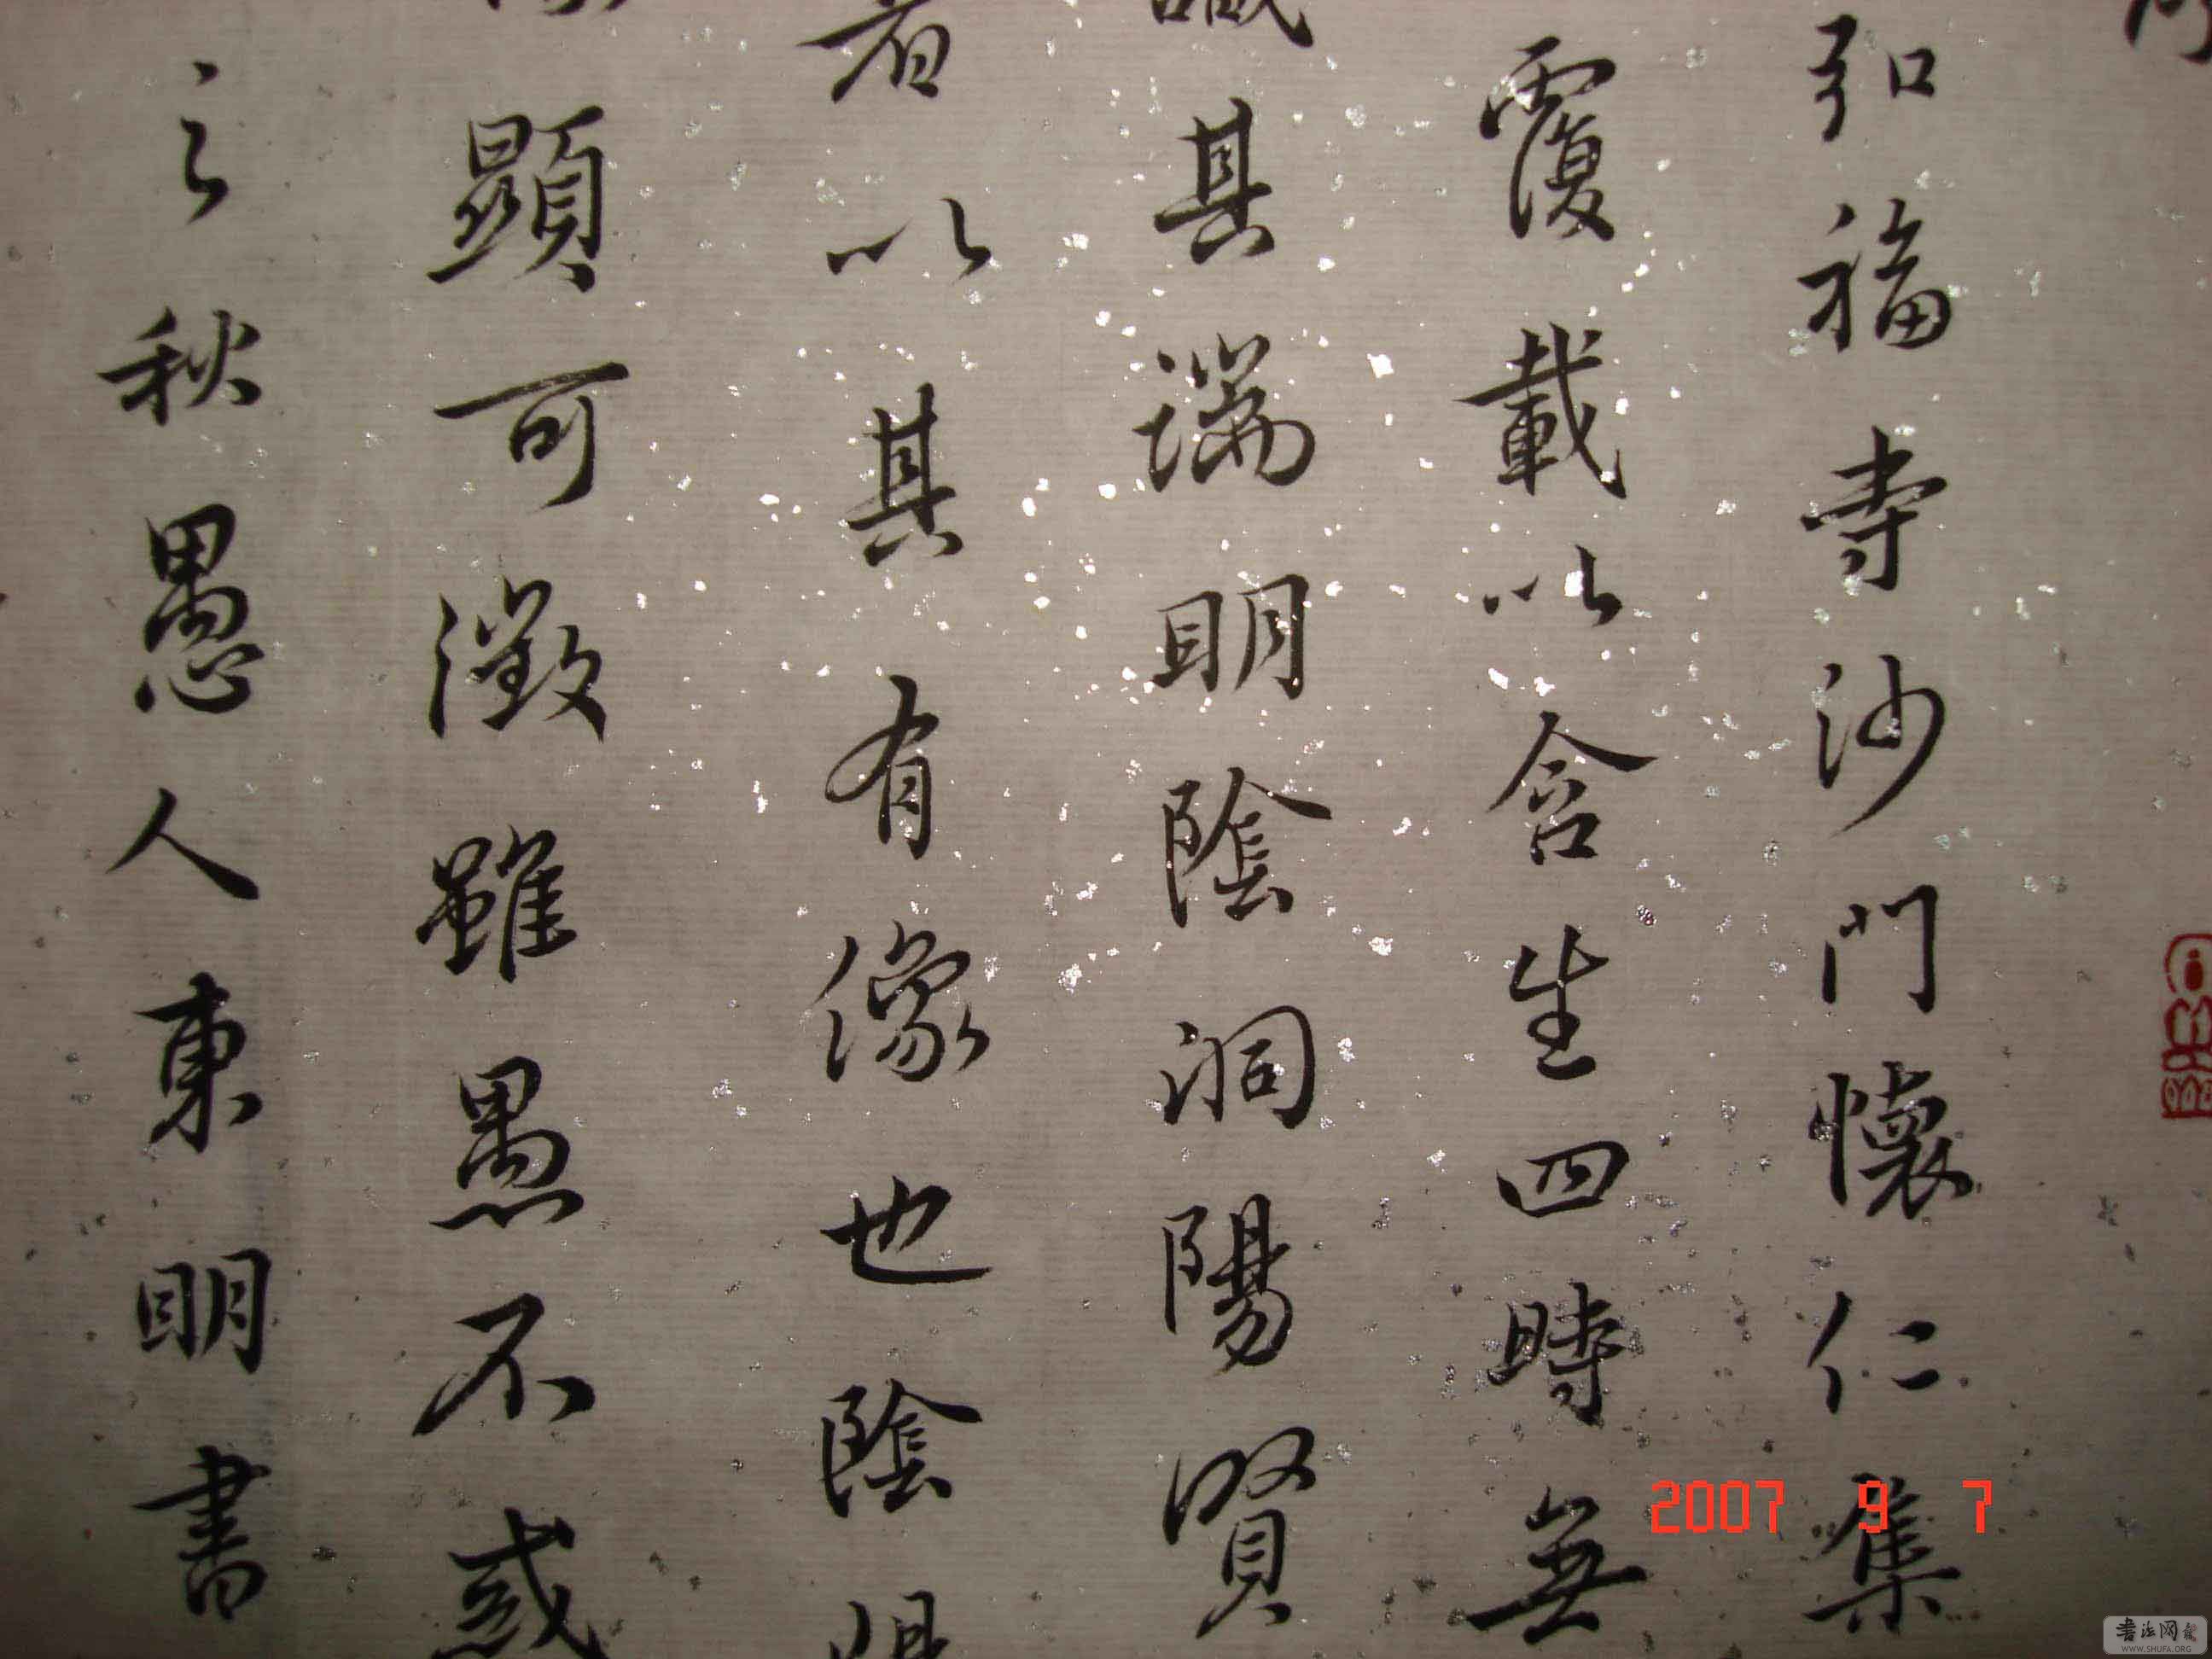 弘福寺沙門懷仁集
覆載以含生四時無
識其端明陰洞陽賢
者以其有像也陰
顯可徵雖愚不惑
之秋愚人東明書
2007 9 7
書法网
WWW.SHUFA.ORG